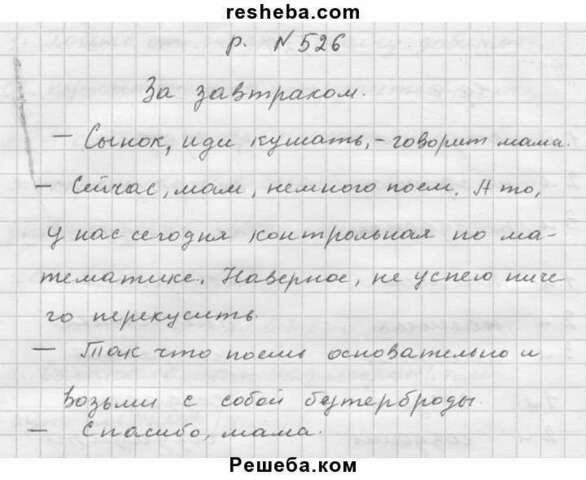 resheba.com
р. №526
За завтраком.
— Сынок, иди кушать, – говорит мама.
— Сейчас, мам, немного поем. А то,
у нас сегодня контрольная по ма-
тематике. Наверное, не успею ниче
го перекусить.
— Так что поешь основательно и
возьми с собой бутерброды.
— Спасибо, мама.
Решеба.ком